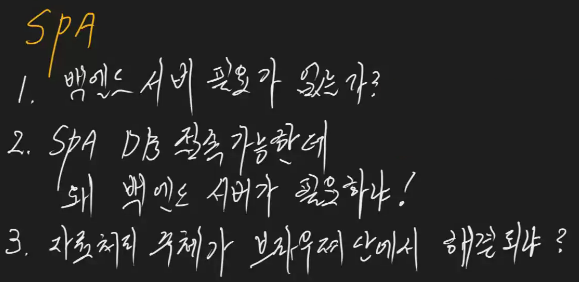 SPA
1. 백엔드 서버 필요가 있는가?
2. SPA DB 접속 가능한데
왜 백엔드 서버가 필요하냐!
3. 자료처리 주체가 브라우져 단에서 해결되냐?